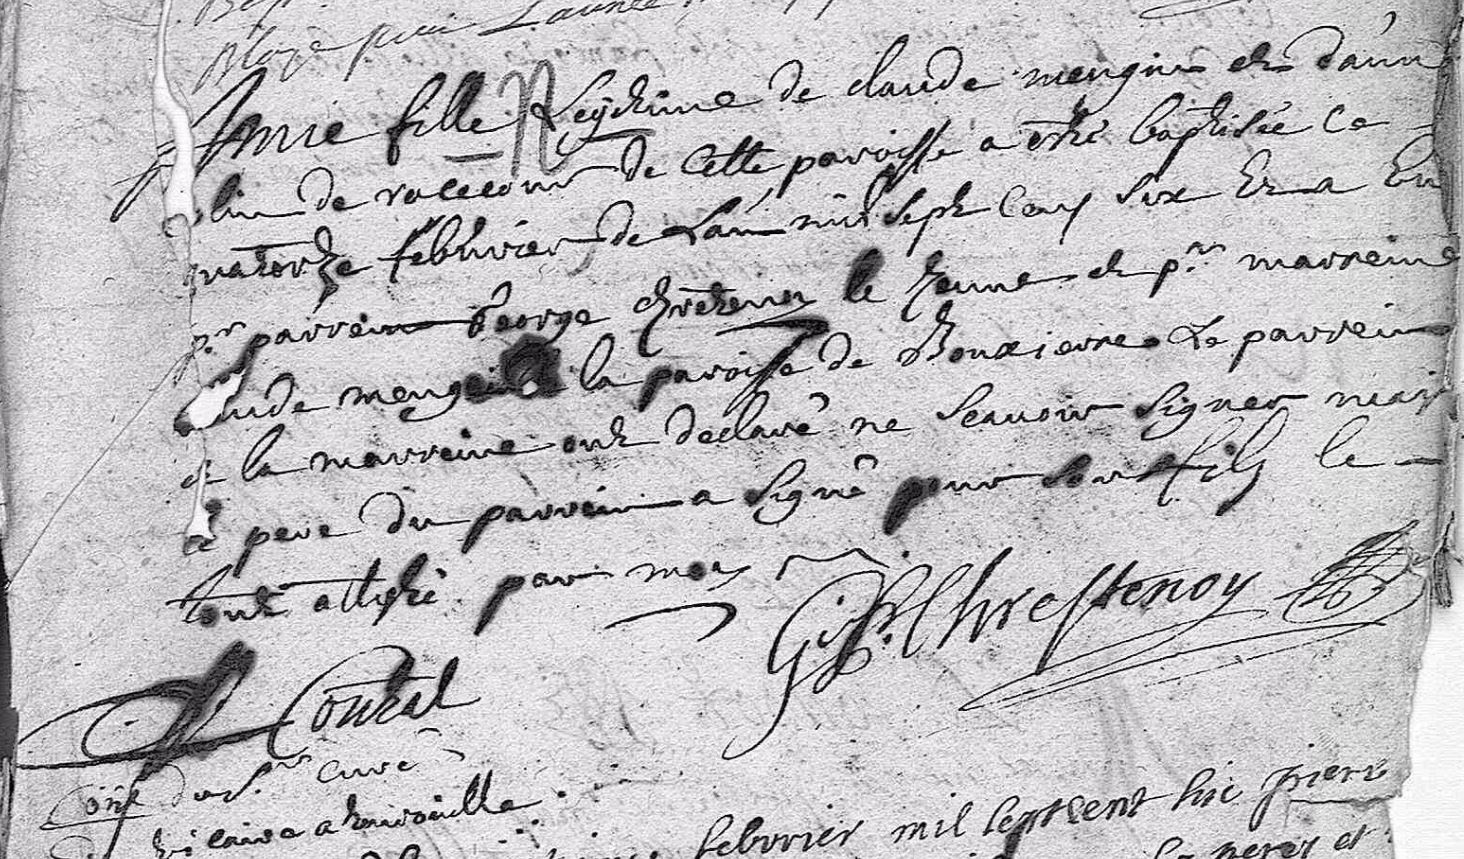 pour L'année
Anne fille Legitime de claude mengin et d'ann
de cette paroisse a esté baptisée le
quatorze febvrier de L'an mil sept cens six Et a Eu
pr parrein George chretenoy le Jeune et pr marreine
claude mengein la paroisse de Bouxieres Le parrein
et la marreine ont declaré ne scauoir signer mais
le pere du parrein a signé pour son fils le
tout attesté par moy
G Chrestenoy
Contal
curé
vicaire a
febvrier mil sept cent six pierre
et